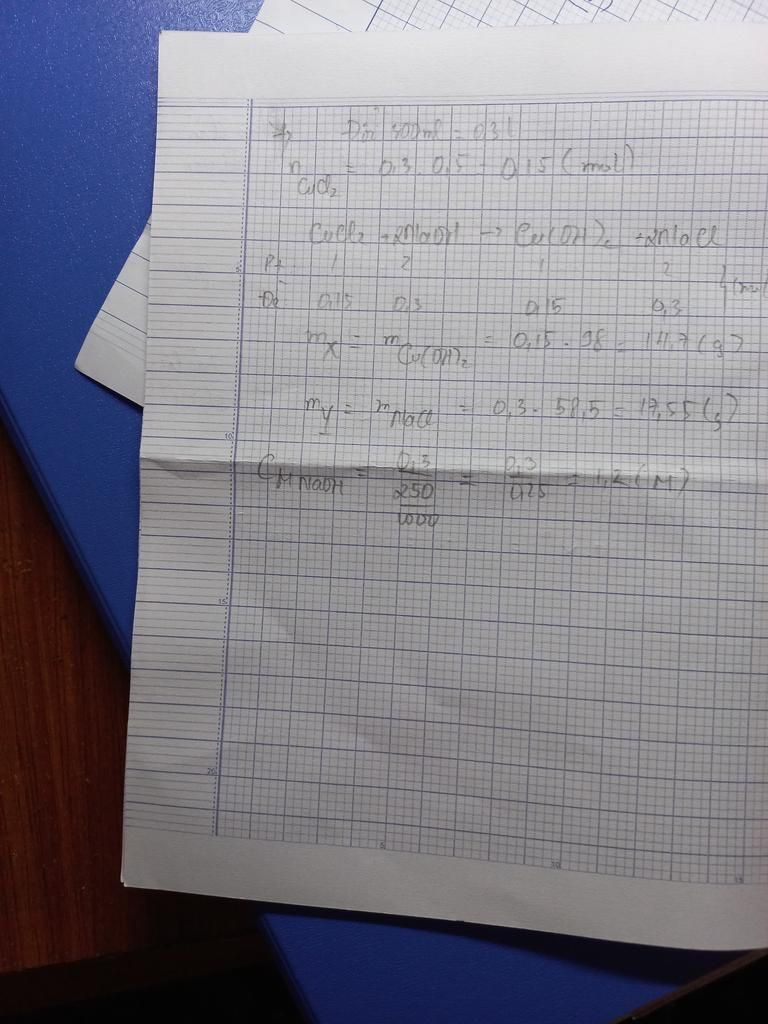 Đổi 300ml = 0,3 l
nCuCl2 = 0,3 . 0,5 = 0,15 (mol)
CuCl2 + 2NaOH → Cu(OH)2 + 2NaCl
Pt 1 2 1 2
Đề 0,15 0,3 0,15 0,3
mX = mCu(OH)2 = 0,15 . 98 = 14,7 (g)
mY = mNaCl = 0,3 . 58,5 = 17,55 (g)
CM NaOH = 0,3 / (250/1000) = 0,3 / 0,25 = 1,2 (M)